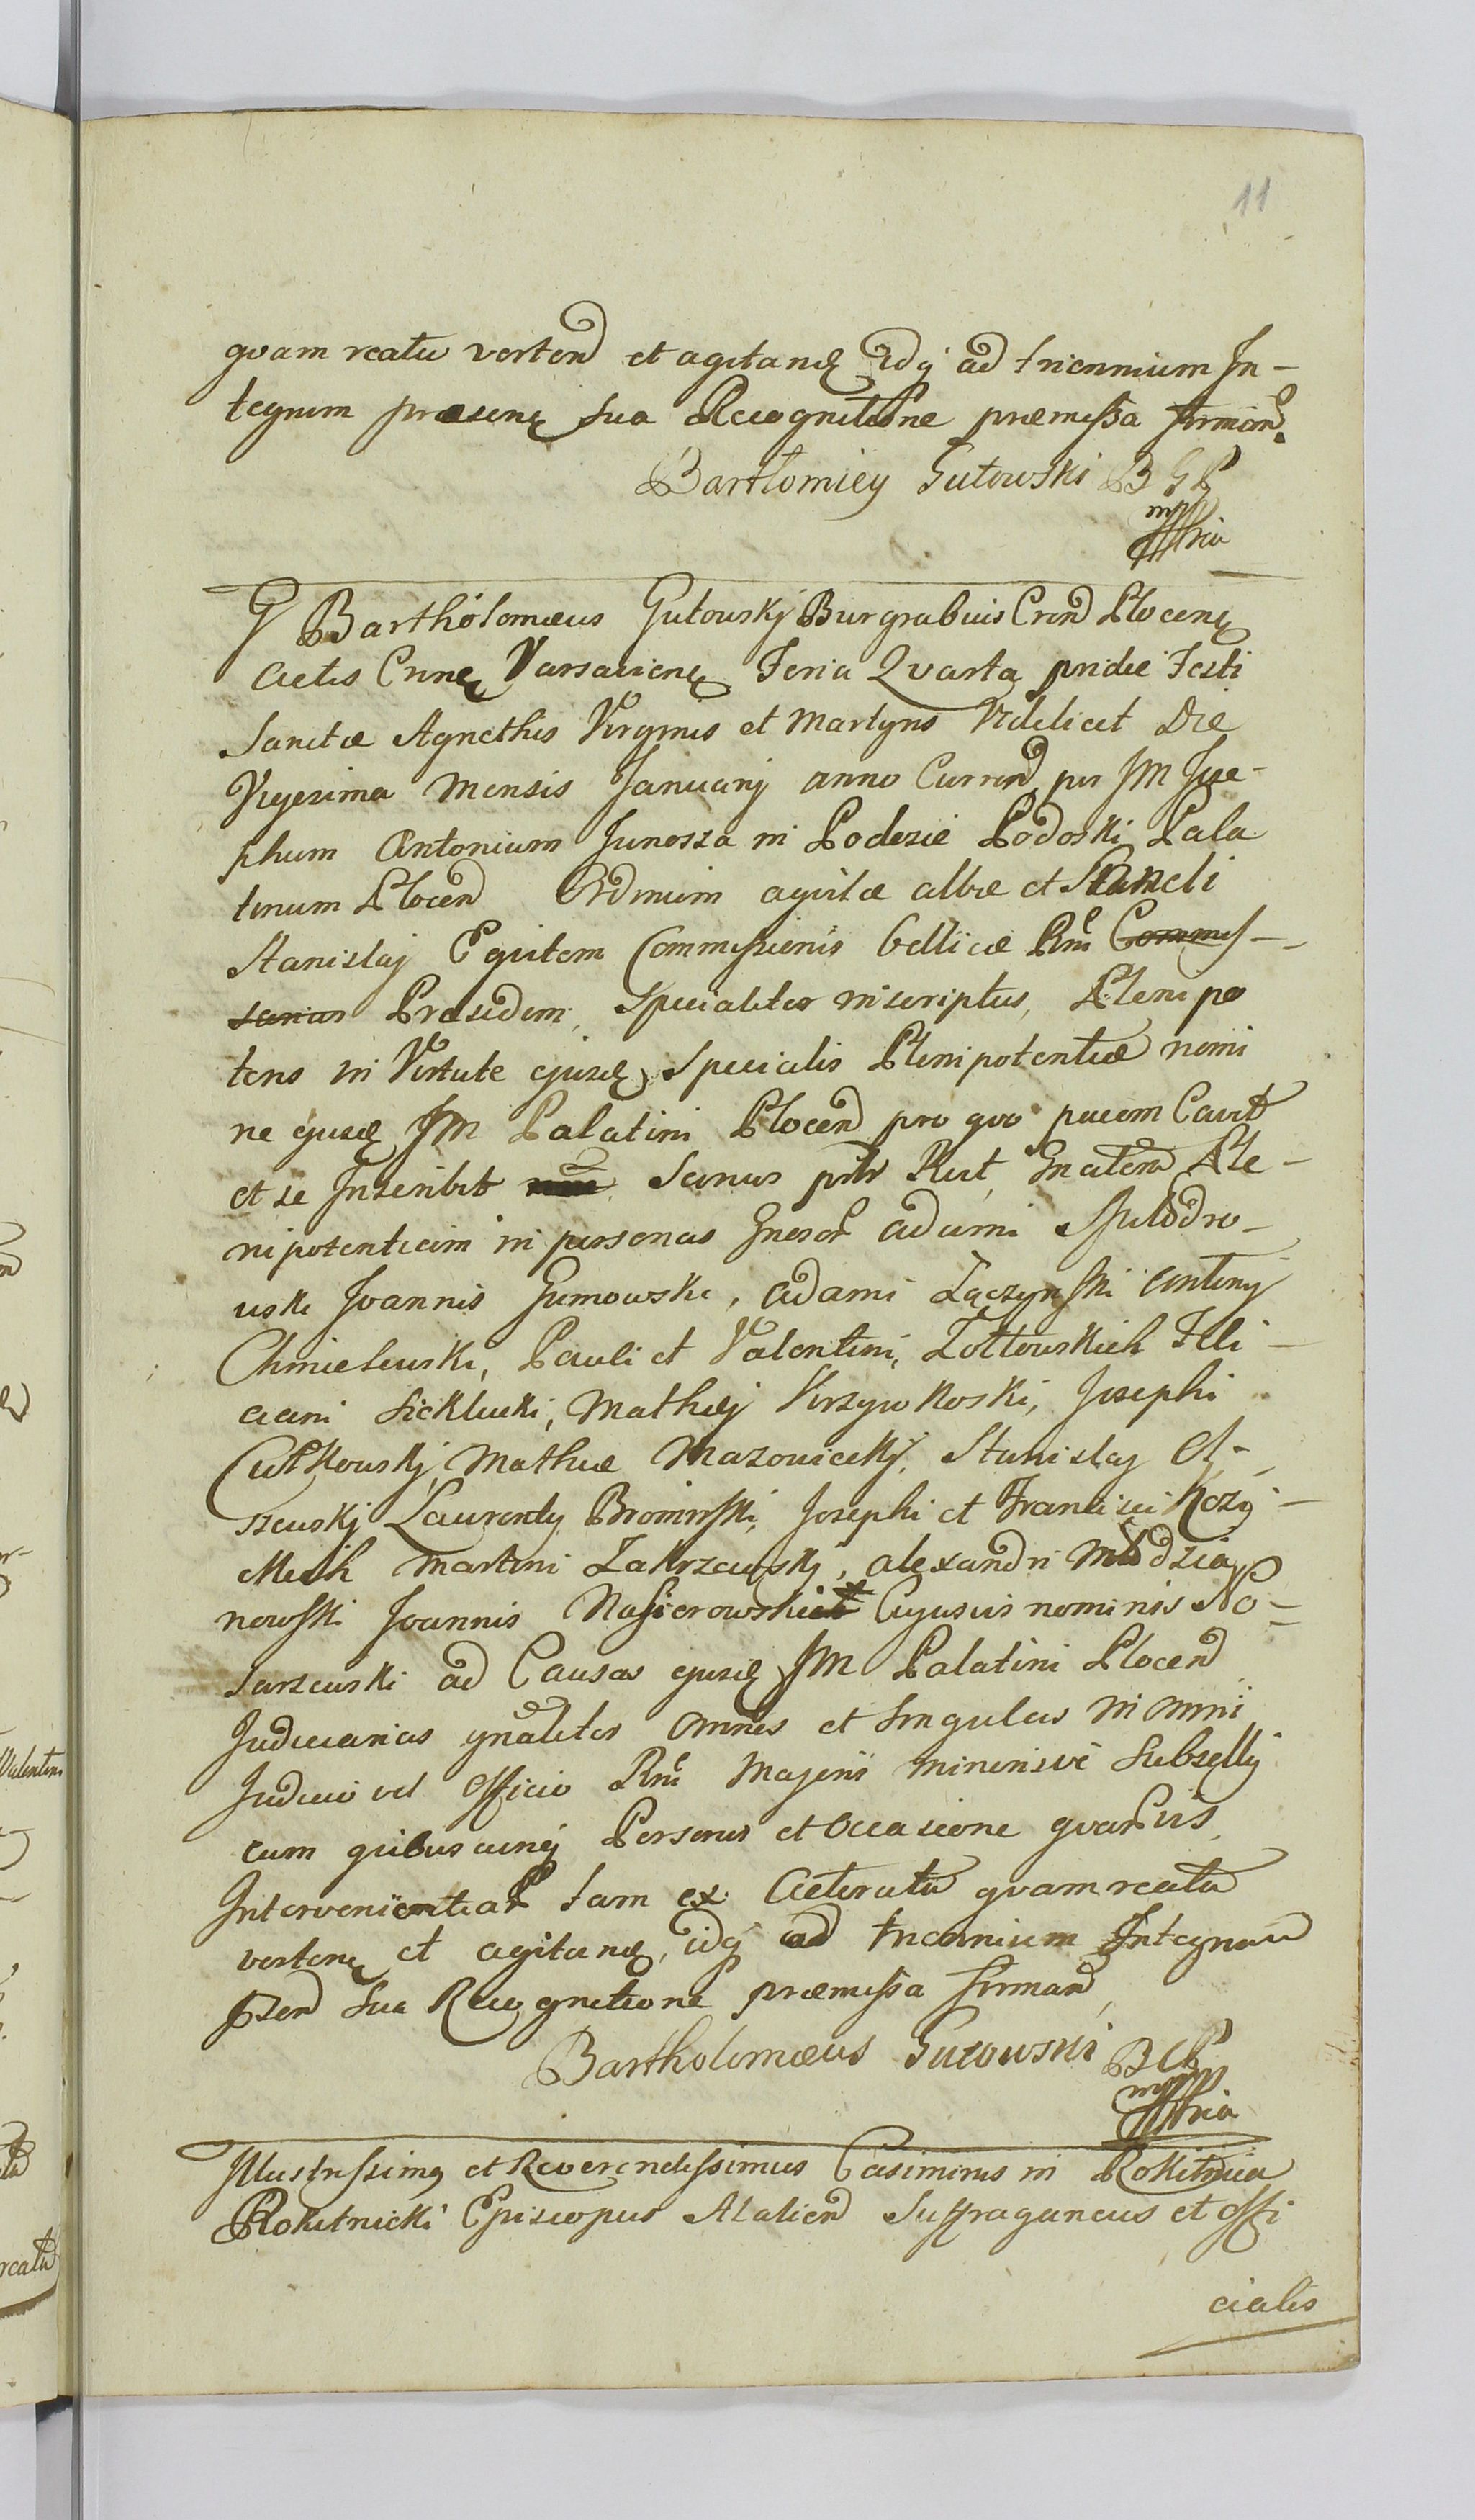 11
qvam reatu vertend et agitand idq ad triennium In-
tegrum præsend sua Recognitione præmissa firmand.
Bartłomiey Gutowski B G P
mppria
G Bartholomæus Gutouskj Burgrabuis Crend Plocens
actis Crnse Varsaviens Feria Qvarta pridie Festi
Sanctæ Agnethis Virginis et Martyris Videlicet Die
Vigesima Mensis Januarij anno Currend per JM Jose-
phum Antonium Junosza in Podosie Podoski Pala
tinum Plocen Ordinum aqvilæ albæ et Sancti
Stanislaj Eqvitem Commissionis bellicæ Rni Commis-
sarium Præsidem, Specialiter inscriptus, Plenipo
tens in Virtute ejusd Specialis Plenipotentiæ nomi
ne ejusd JM Palatini Plocen pro qvo pacem Cavit
et se Inscribit Sanus pttr Rect Gnalem Ple-
nipotentiam in personas Gnesor Adami Spilodro-
uski Joannis Gumowski, Adami Łączynski Antonij
Chmieleuski, Pauli et Valentini, Zołtouskich Feli-
ciani Siekłucki, Mathej Krzywkoski, Josephi
Cutkouskj Mathiæ Mazowieckj, Stanislaj Ol-
szeuskj Laurentij Brominski, Josephi et Francisci Kozij-
Mich Martini Zakrzeuskj, Alexandri Młodzia
nowski Joannis Nasierowski Cujusvis nominis No-
sarzeuski ad Causas ejusd JM Palatini Plocen
Judiciarias gnaliter Omnes et Singulas in omni
Judicio vel Officio Rni Majoris minorisve Subsellij
cum qvibuscunq Personis et Occasione qvarvis
Intervenientiar tam ex Actoratu qvam reatu
verten et agitand, idq ad triennium Integrum
pzen Sua Recognitione præmissa firmand
Bartholomæus Gutowski B C P
mppria
Illustrissimq et Reverendissimus Casimirus in Rokitnica
Rokitnicki Episcopus Atalien Suffraganeus et offi
cialis